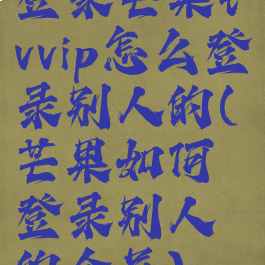 登录芒果t
vvip怎么登
录别人的(
芒果如何
登录别人
的会员)